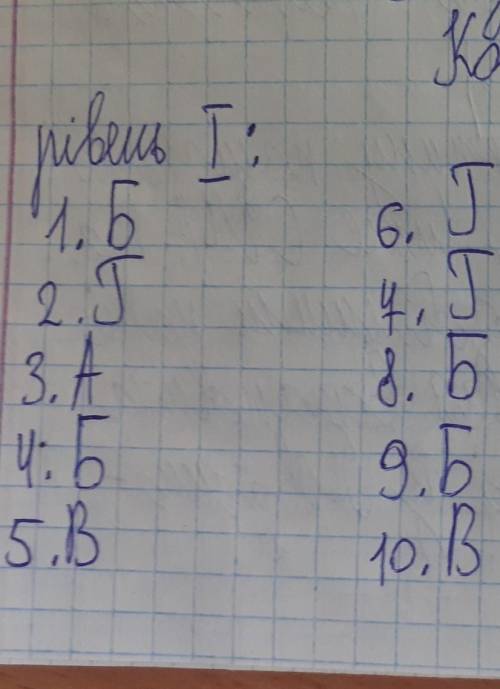 рівень I:
1. Б
2. Г
3. А
4. Б
5. В
6. Г
7. Г
8. Б
9. Б
10. В